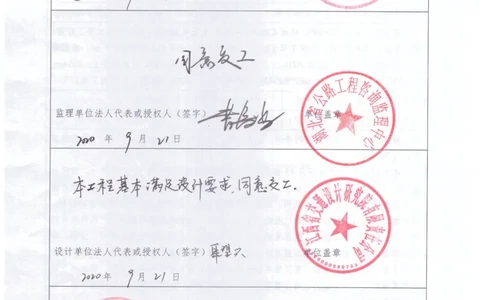 同意交工
监理单位法人代表或授权人（签字）
单位盖章
湖北省公路工程咨询监理中心
2020 年 9 月 21 日
本工程基本满足设计要求，同意交工.
江西省交通设计研究院有限责任公司
设计单位法人代表或授权人（签字）
单位盖章
2020 年 9 月 21 日